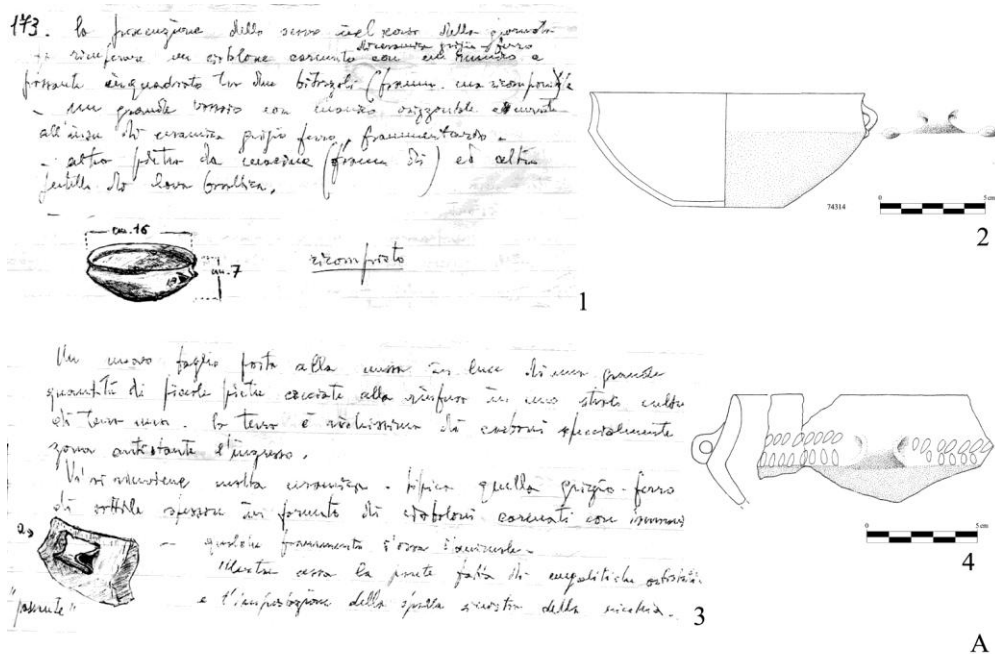 173. La prosecuzione dello scavo nel corso della giornata
di ceramica grigio ferro
rinvenire un ciotolone carenato con un e
inquadrato tra due bitorzoli (framm. ma
- un grande con manico orizzontale
all'ansa di ceramica grigio ferro, frammentario -
- altra pietra da macina (framm. di) ed altri
pestelli di lava basaltica.
cm. 16
cm. 7
ricomposto
1
74314
0 5cm
2
Un nuovo taglio porta alla messa in luce di una grande
quantità di piccole pietre cacciate alla rinfusa in uno strato
di terra nera. La terra è ricchissima di carboni specialmente
zona antistante l'ingresso.
Vi si rinviene molta ceramica. tipica quella grigio-ferro
di sottile spessore in formato di ciotoloni carenati con
- qualche frammento d'ossa d'animale -
Mentre la parete fatta di megalitiche
e l'impostazione della spalla sinistra della nicchia.
"passante"
3
0 5cm
4
A